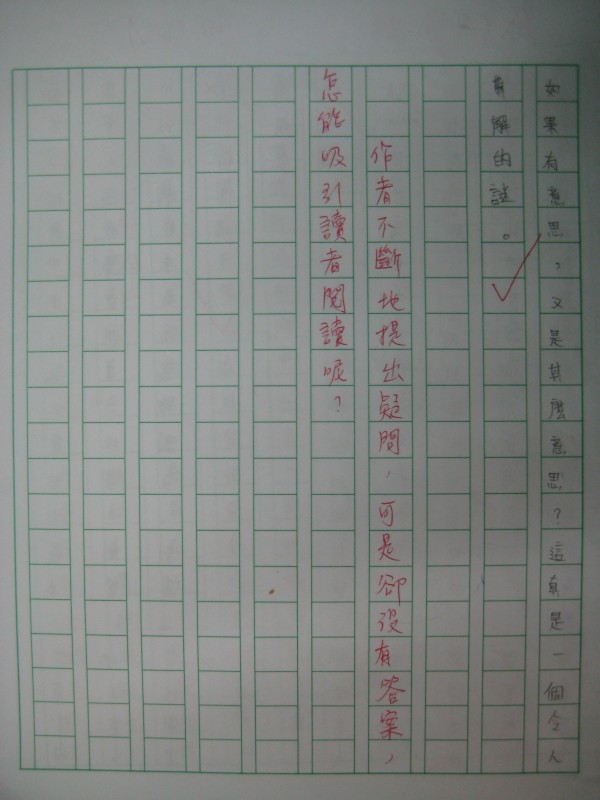 如果有意思，又是其麼意思？這真是一個令人
解的謎。
作者不斷地提出疑問，可是卻沒有答案，
怎能吸引讀者閱讀呢？